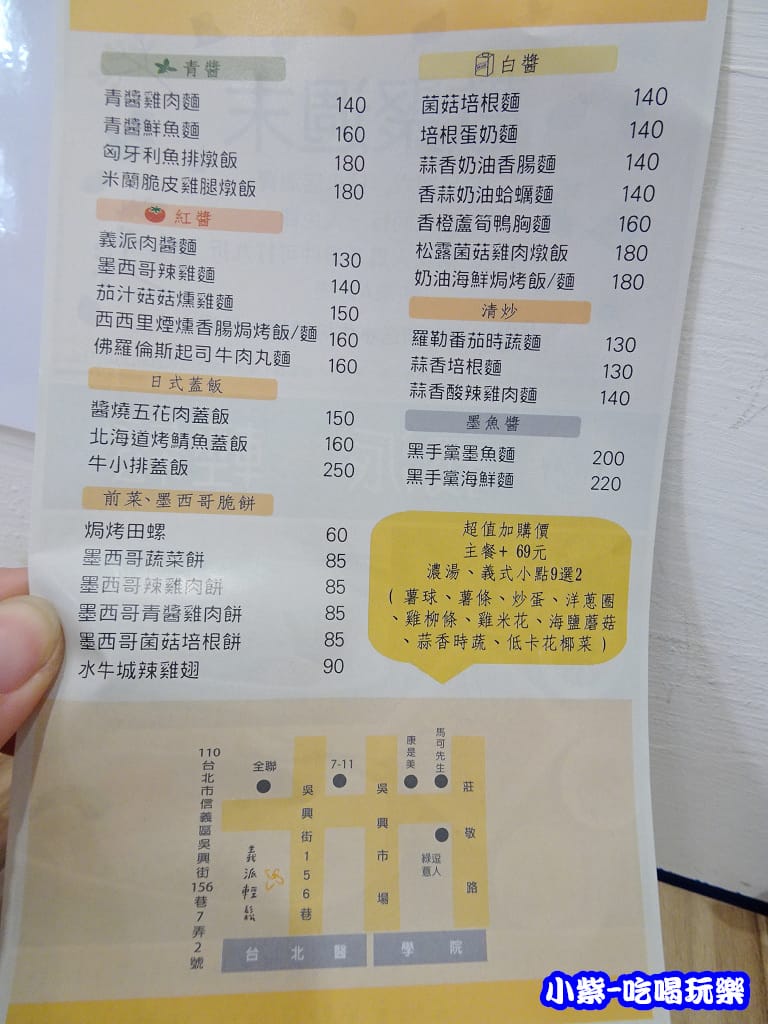 青醬
青醬雞肉麵 140
青醬鮮魚麵 160
匈牙利魚排燉飯 180
米蘭脆皮雞腿燉飯 180
紅醬
義派肉醬麵 130
墨西哥辣雞麵 140
茄汁菇菇燻雞麵 150
西西里煙燻香腸焗烤飯/麵 160
佛羅倫斯起司牛肉丸麵 160
日式蓋飯
醬燒五花肉蓋飯 150
北海道烤鯖魚蓋飯 160
牛小排蓋飯 250
前菜、墨西哥脆餅
焗烤田螺 60
墨西哥蔬菜餅 85
墨西哥辣雞肉餅 85
墨西哥青醬雞肉餅 85
墨西哥菌菇培根餅 85
水牛城辣雞翅 90
白醬
菌菇培根麵 140
培根蛋奶麵 140
蒜香奶油香腸麵 140
香蒜奶油蛤蠣麵 140
香橙蘆筍鴨胸麵 160
松露菌菇雞肉燉飯 180
奶油海鮮焗烤飯/麵 180
清炒
羅勒番茄時蔬麵 130
蒜香培根麵 130
蒜香酸辣雞肉麵 140
墨魚醬
黑手黨墨魚麵 200
黑手黨海鮮麵 220
超值加購價
主餐+ 69元
濃湯、義式小點9選2
( 薯球、薯條、炒蛋、洋蔥圈
、雞柳條、雞米花、海鹽蘑菇
、蒜香時蔬、低卡花椰菜 )
110台北市信義區吳興街156巷7弄2號
全聯
義派輕鬆
吳興街156巷
7-11
吳興市場
康是美
馬可先生
綠逗薏人
莊敬路
台北醫學院
小紫-吃喝玩樂